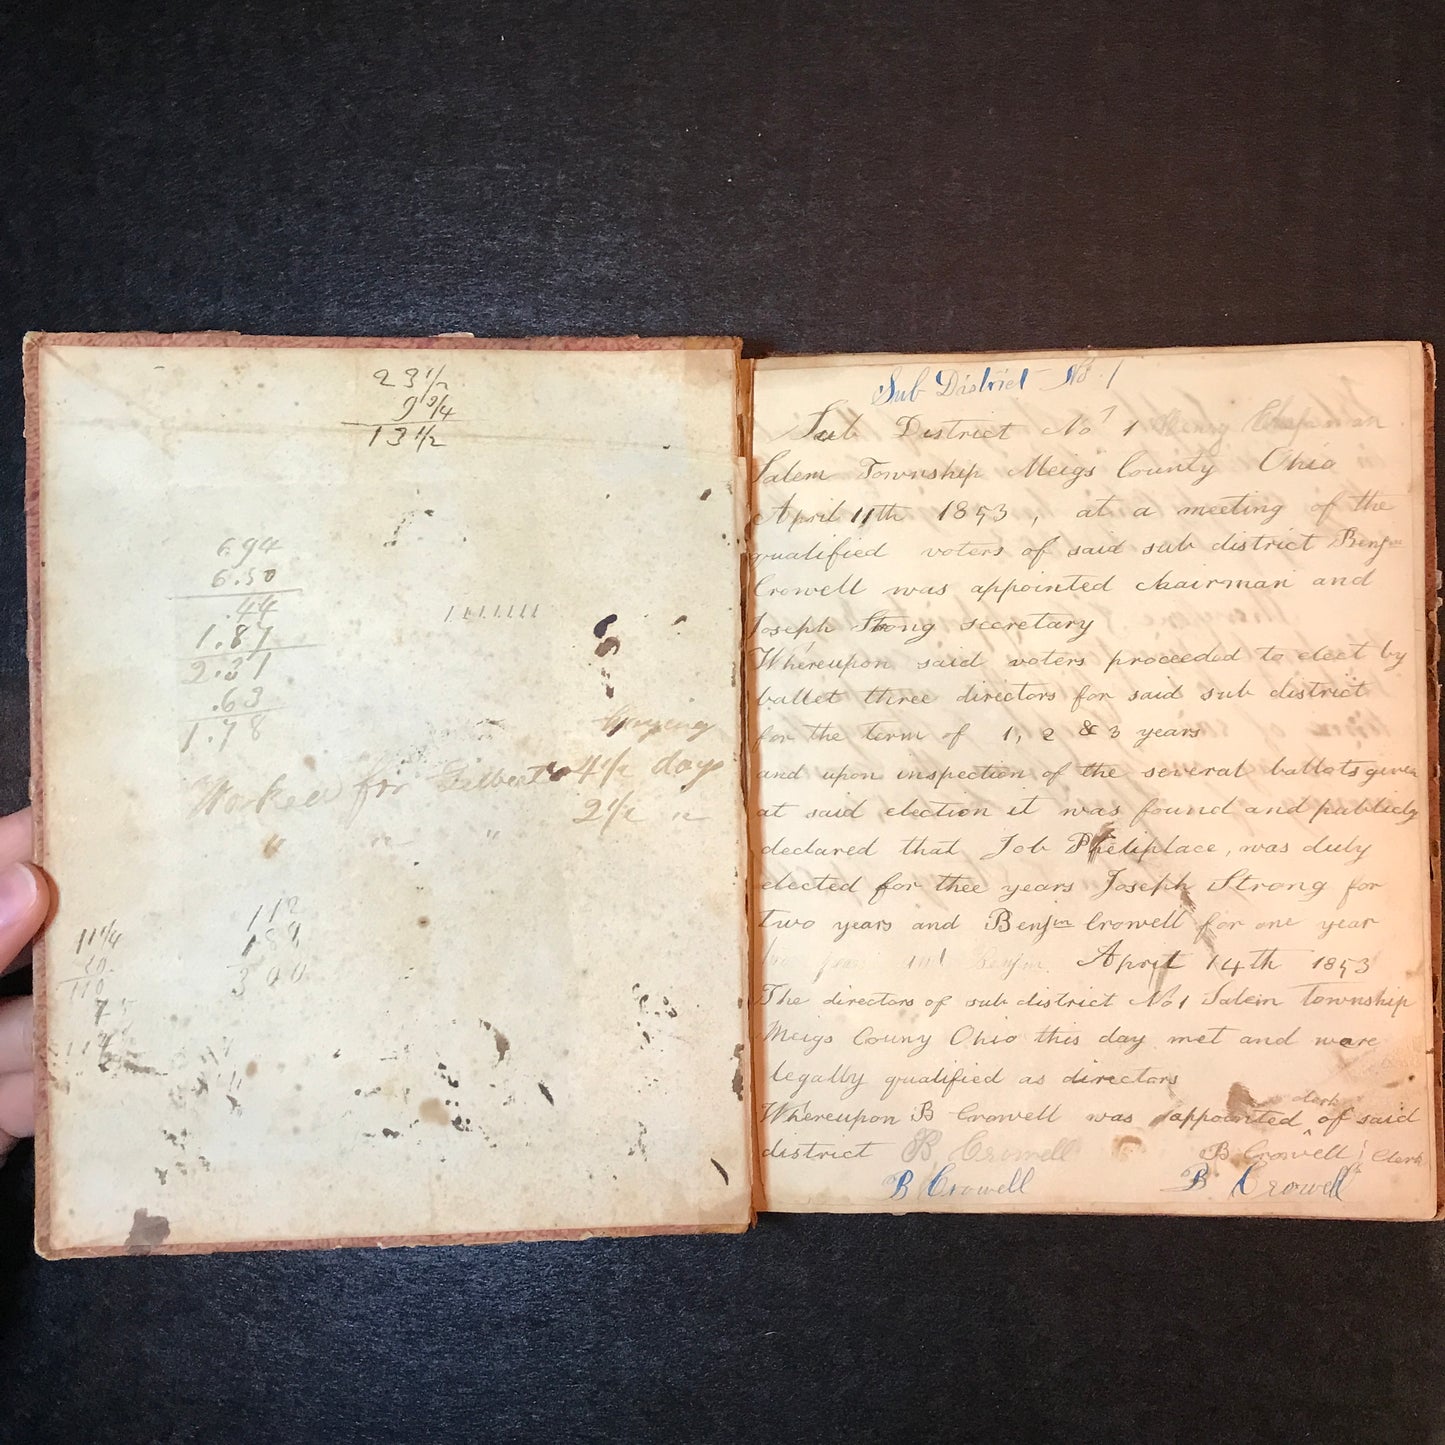 23 1/2
9 3/4
13 1/2
6.94
6.50
.44
1.87
2.31
.63
1.78
4 1/2 days
Worked for Gilbert
2 1/2 "
" " "
112
188
300
11 1/4
110
Sub District No. 1
Sub District No 1 Henry Chapman
Salem Township Meigs County Ohio
April 11th 1853, at a meeting of the
qualified voters of said sub district Benjn
Crowell was appointed chairman and
Joseph Strong secretary
Whereupon said voters proceeded to elect by
ballet three directors for said sub district
for the term of 1, 2 & 3 years
and upon inspection of the several ballots given
at said election it was found and publicly
declared that Job Pheliplace, was duly
elected for thee years Joseph Strong for
two years and Benjn Crowell for one year
April 14th 1853
The directors of sub district No 1 Salem township
Meigs Couny Ohio this day met and ware
legally qualified as directors
clerk
Whereupon B Crowell was appointed ^ of said
district B Crowell B Crowell Clerk
B Crowell B Crowell